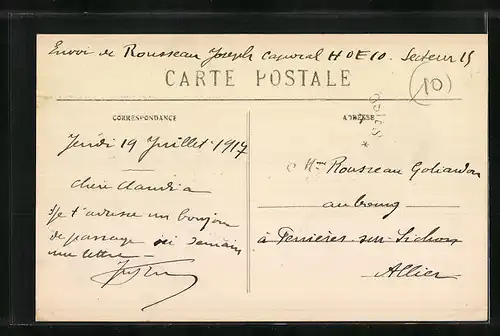 Envoi de Rousseau Joseph Caporal H O E 10. Secteur 15
CARTE POSTALE
10
CORRESPONDANCE
ADRESSE
Jeudi 19 Juillet 1917
Chère Claudia
Je t'adresse un bonjour
de passage ici demain
une lettre
Mme Rousseau Goliardon
au bourg
à Ferrières-sur-Sichon
Allier